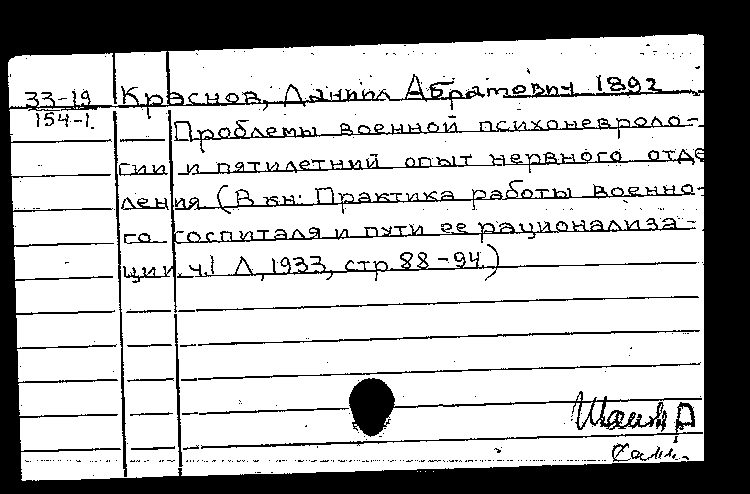 33-19 Краснов, Даниил Абрамович 1892
154-1. Проблемы военной психоневроло-
гии и пятилетний опыт нервного отде
ления (В кн: Практика работы военно-
го госпиталя и пути ее рационализа-
ции. ч.1 Л, 1933, стр. 88-94.)